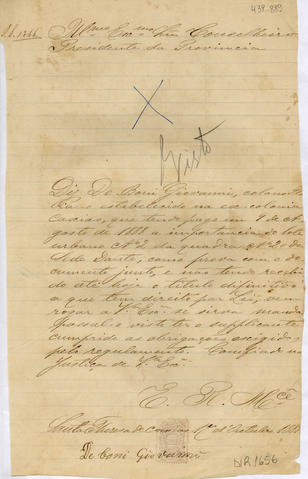 438.889
Illmo Exmo Snr Conselheiro
Presidente da Provincia
Visto
Diz De Boni Giovanni, colono
estabelecido na ex-colonia
Caxias, que tendo pago em 9 de A
gosto de 1888 a importancia do lote
urbano Nº 2 da quadra Nº 20 da
Séde Dante, como prova com o do
cumento junto, e não tendo recebi
do até hoje o titulo definitivo
a que tem direito por Lei, vem
rogar a V. Exª se sirva mandar
passal-o visto ter o supplicante
cumprido as obrigações exigidas
pelo regulamento. Confiado na
Justiça de V. Exª
E. R. Mcê
Santa Thereza de Caxias 1º de Outubro 1888
De Boni Giovanni
NR 1656